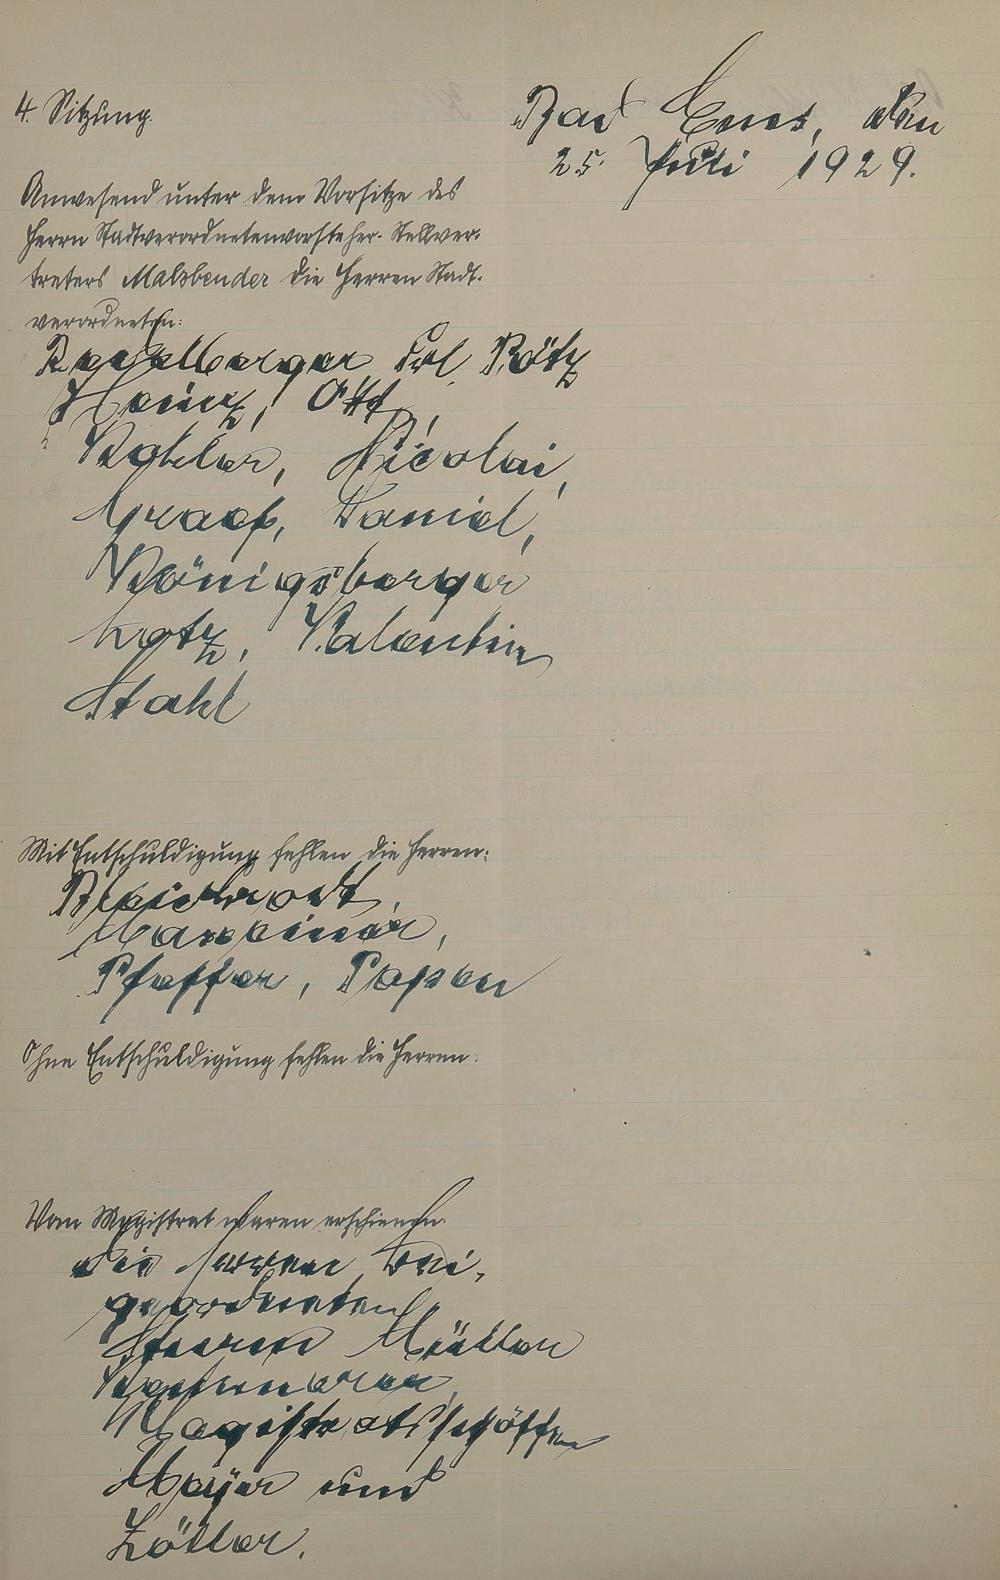 4. Sitzung.
Bad Ems, den
25. Juli 1929.
Anwesend unter dem Vorsitze des
Herrn Stadtverordnetenvorsteher-Stellver-
treters Malzbender die Herren Stadt-
verordneten:
Frl. Rötz
Heinz, Ott,
Kohler, Nicolai,
Graef, Daniel,
Königsberger
Lotz, Valentin
Stahl
Mit Entschuldigung fehlen die Herren:
Pfeffer, Papen
Ohne Entschuldigung fehlen die Herren:
Vom Magistrat waren erschienen:
die Herren Bei-
geordneten
Müller
Magistratsschöffen
Mayer und
Zöller.